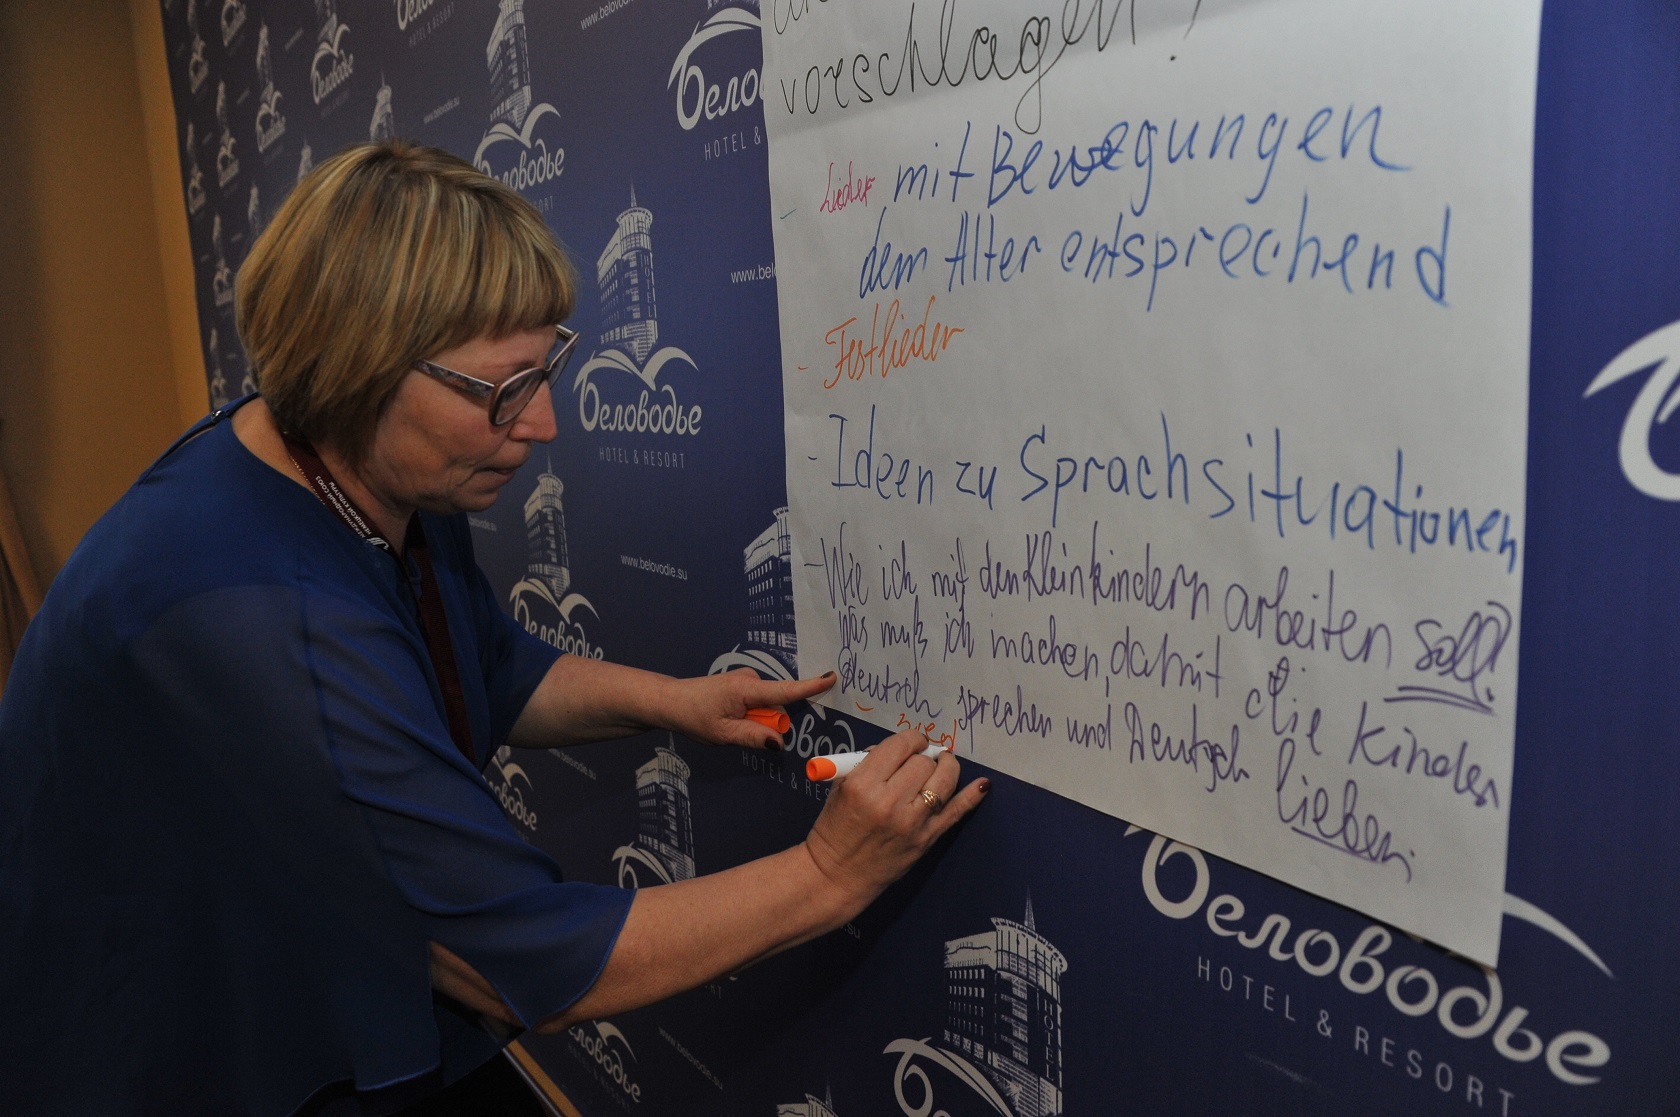 vorschlagen!
- Lieder mit Bewegungen
dem Alter entsprechend
- Festlieder
- Ideen zu Sprachsituationen
- Wie ich mit den Kleinkindern arbeiten soll?
Was muß ich machen, damit die Kinder
Deutsch sprechen und Deutsch lieben.
Беловодье
HOTEL & RESORT
www.belovodie.su
МЕЖДУНАРОДНЫЙ СОЮЗ
НЕМЕЦКОЙ КУЛЬТУРЫ